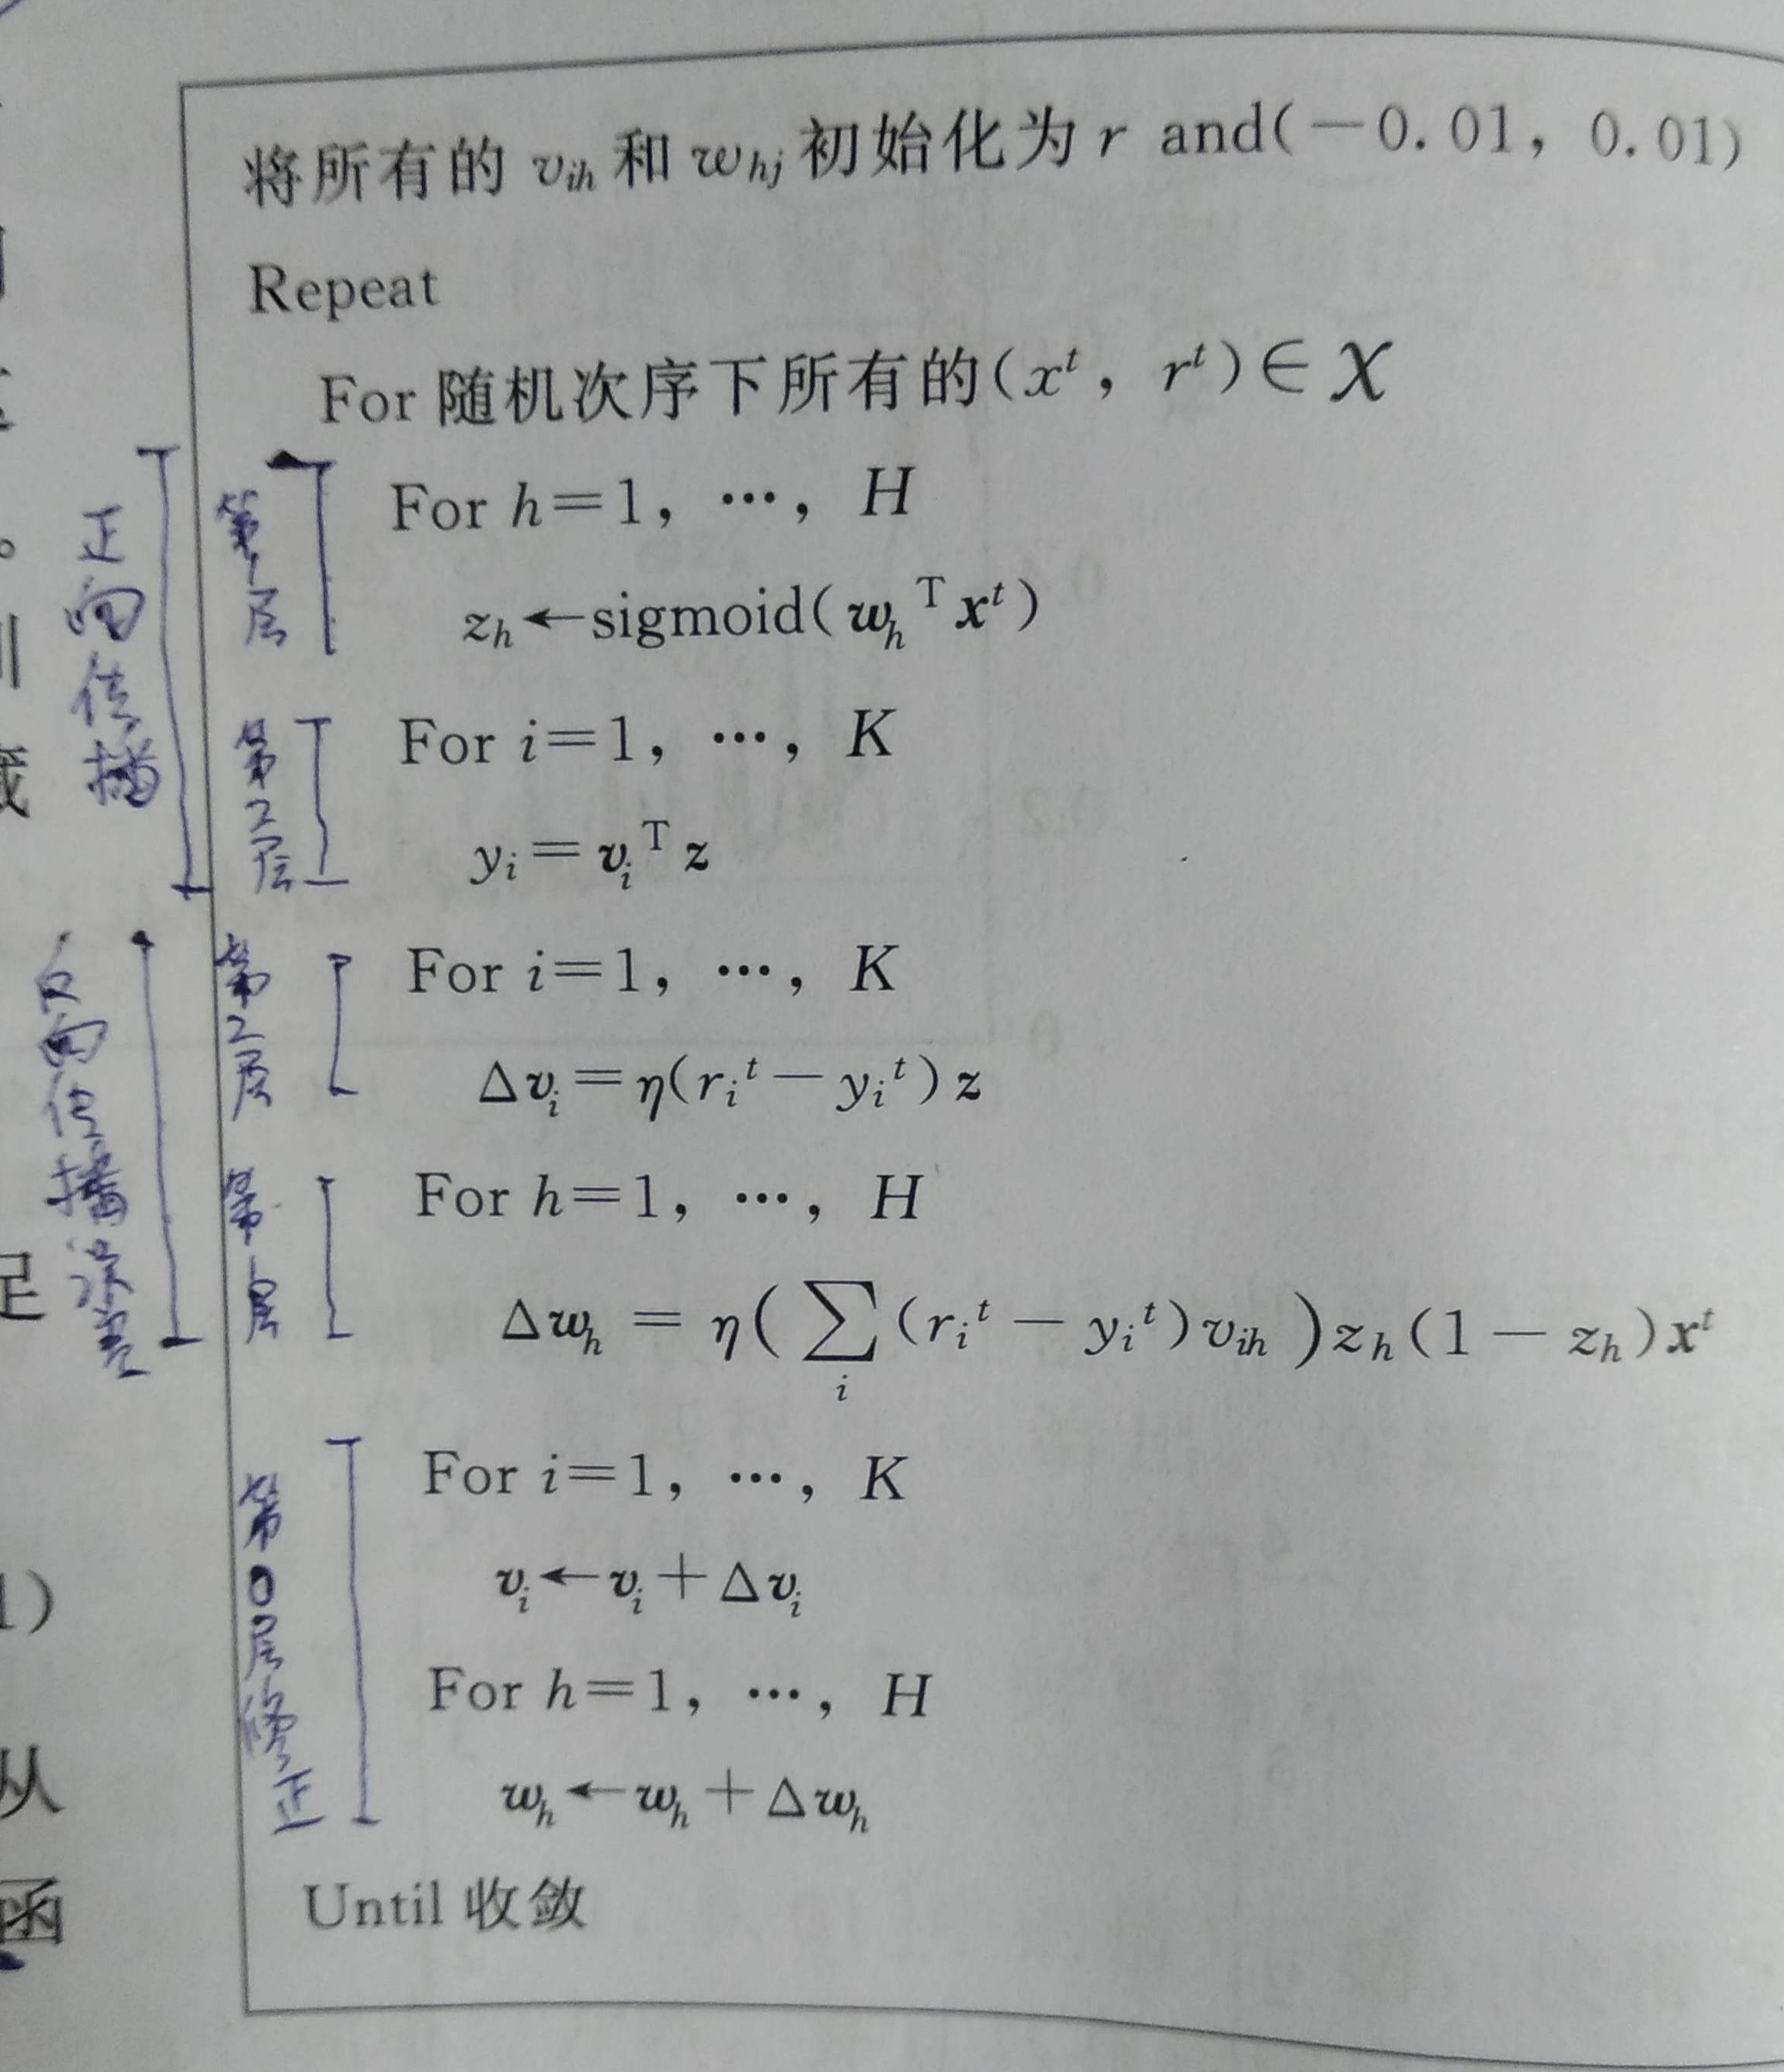 将所有的 v_ih 和 w_hj 初始化为 r and(−0.01, 0.01)
Repeat
For 随机次序下所有的(x^t, r^t)∈X
正向传播
第1层
For h=1, …, H
z_h←sigmoid(w_h^T x^t)
第2层
For i=1, …, K
y_i=v_i^T z
反向传播误差
第2层
For i=1, …, K
Δv_i=η(r_i^t−y_i^t)z
第1层
For h=1, …, H
Δw_h = η(∑_i(r_i^t − y_i^t)v_ih)z_h(1 − z_h)x^t
第0层修正
For i=1, …, K
v_i←v_i+Δv_i
For h=1, …, H
w_h←w_h+Δw_h
Until 收敛
足
1)
从
函